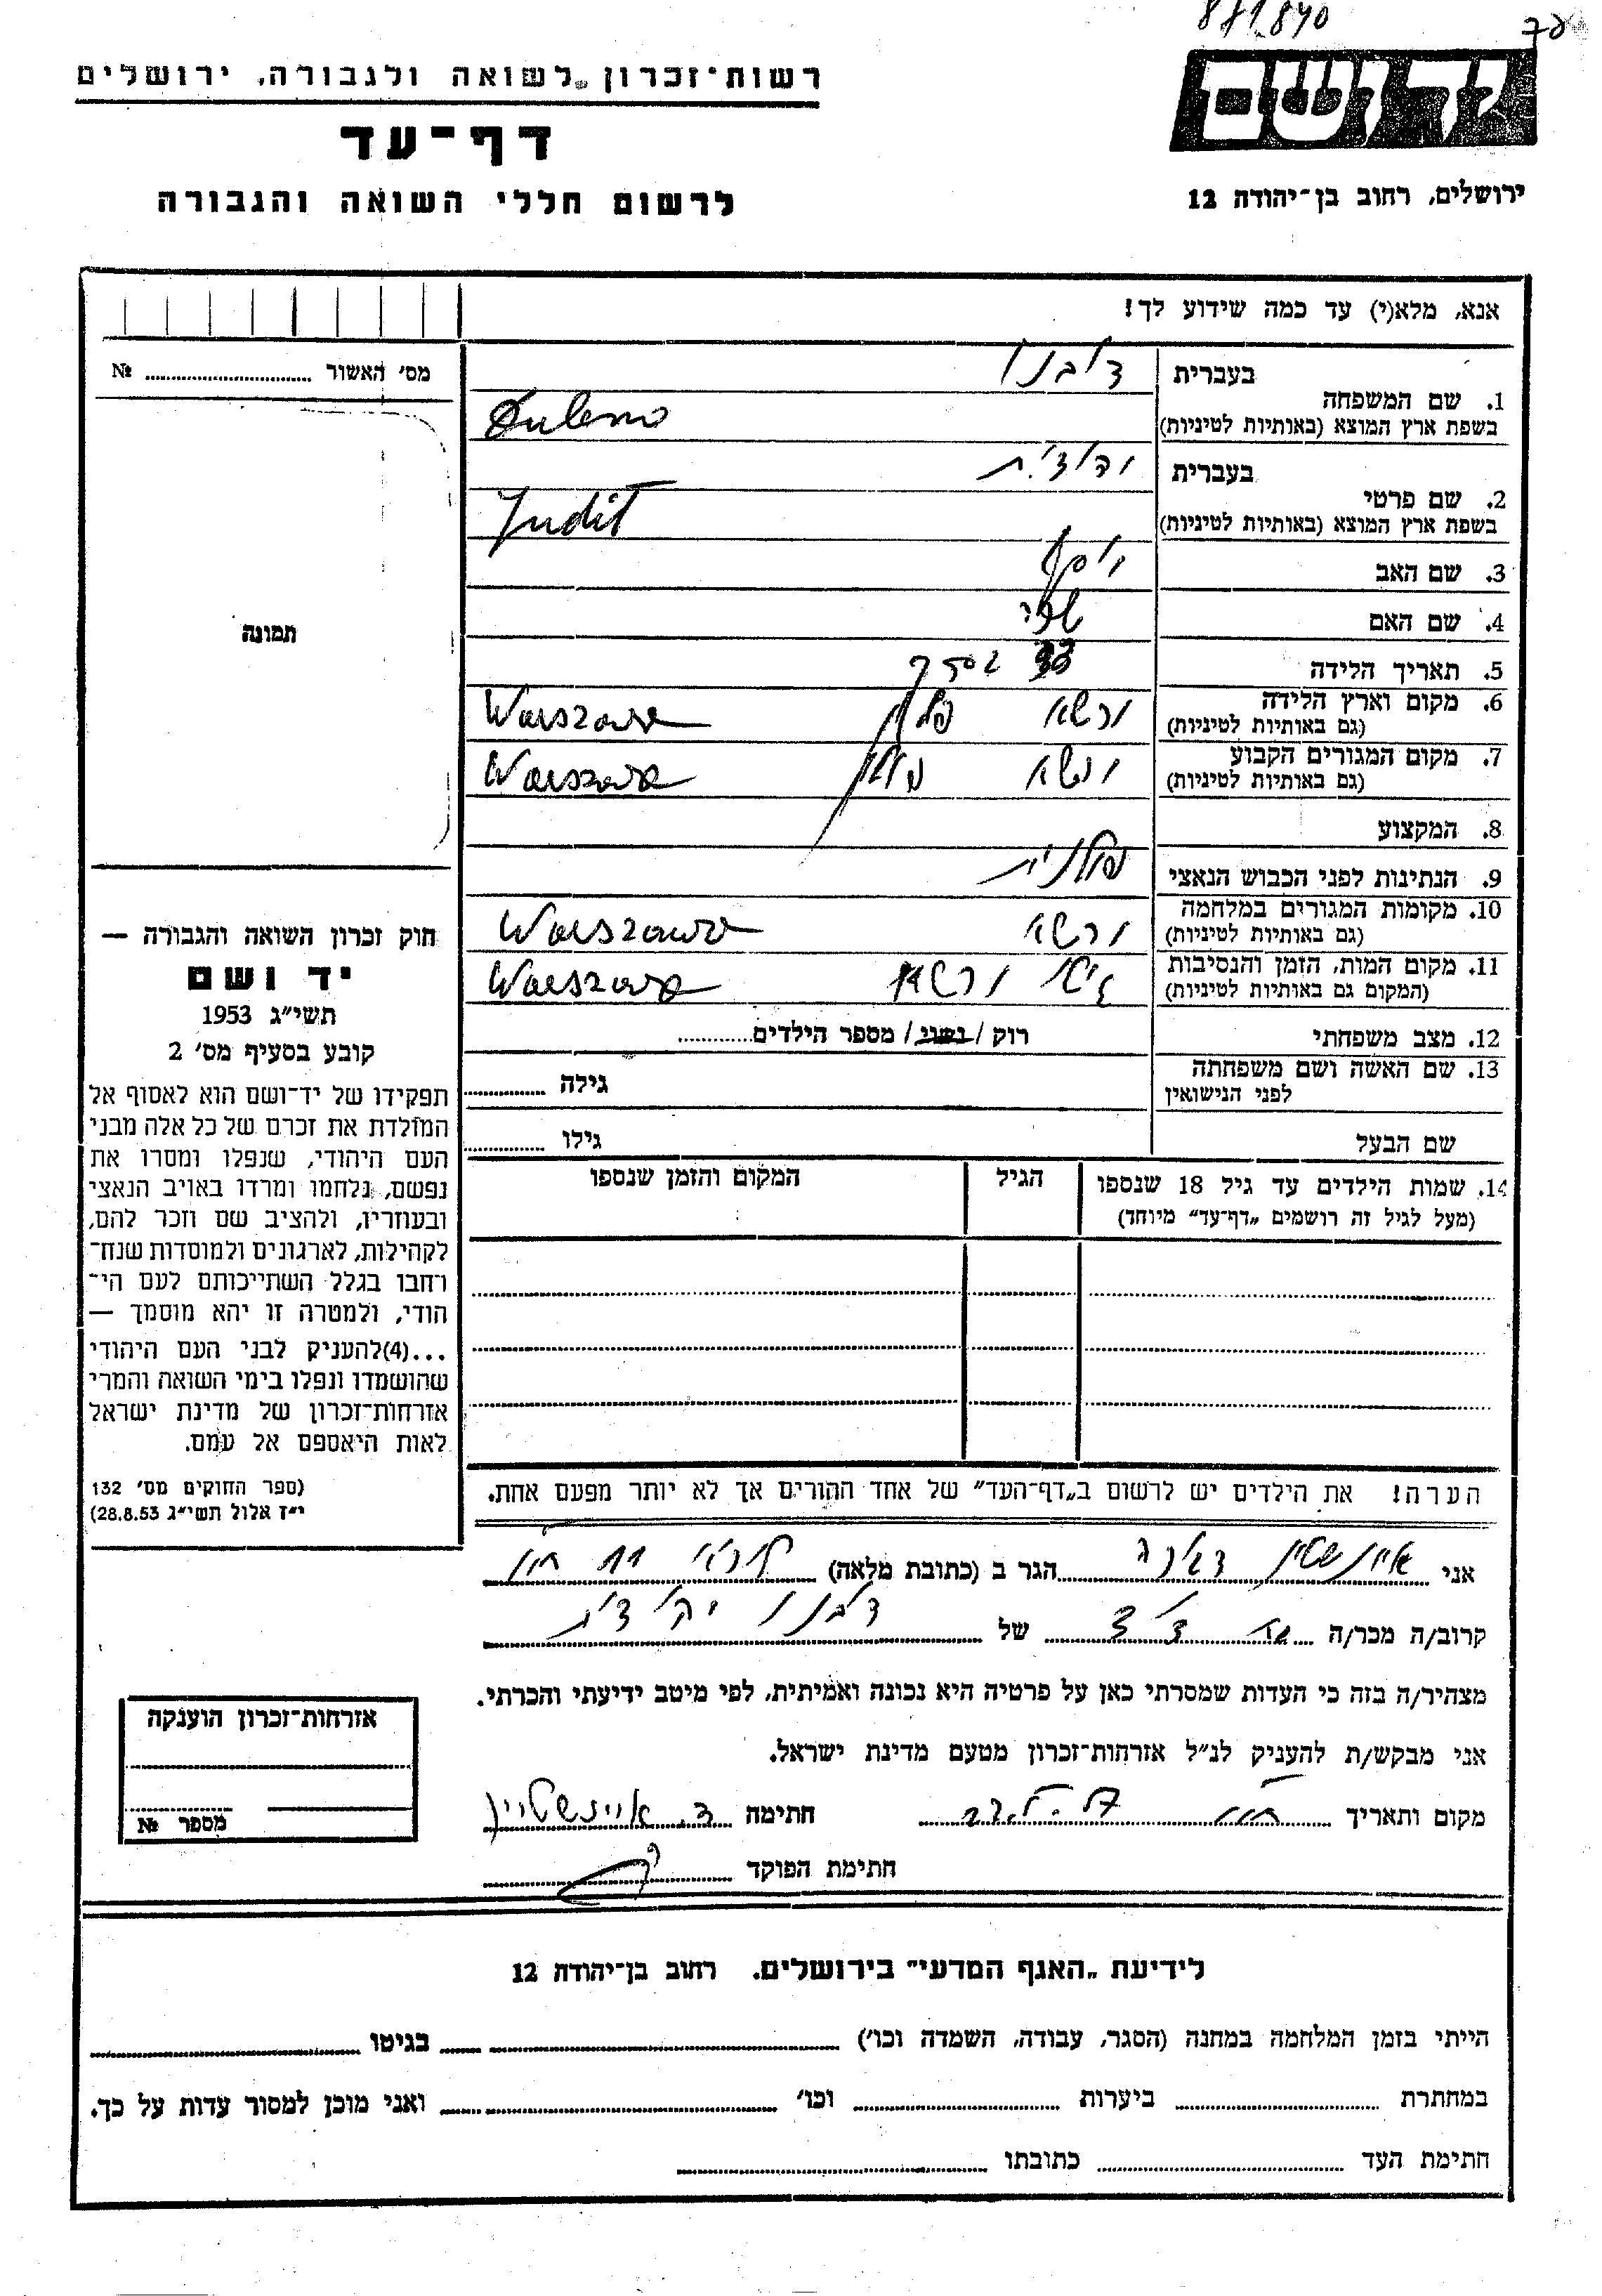 871.840
יד ושם
ירושלים, רחוב בן־יהודה 12
רשות־זכרון לשואה ולגבורה, ירושלים
דף־עד
לרשום חללי השואה והגבורה
אנא, מלא(י) עד כמה שידוע לך!
1. שם המשפחה
בעברית דובנו
בשפת ארץ המוצא (באותיות לטיניות)
2. שם פרטי
בעברית יהודית
בשפת ארץ המוצא (באותיות לטיניות) Judit
3. שם האב יוסף
4. שם האם
5. תאריך הלידה
6. מקום וארץ הלידה ורשא פולין Warszawa
(גם באותיות לטיניות)
7. מקום המגורים הקבוע ורשא פולין Warszawa
(גם באותיות לטיניות)
8. המקצוע
9. הנתינות לפני הכבוש הנאצי פולנית
10. מקומות המגורים במלחמה ורשא Warszawa
(גם באותיות לטיניות)
11. מקום המות, הזמן והנסיבות גיטו ורשא Warszawa
(המקום גם באותיות לטיניות)
12. מצב משפחתי רוק / נשוי / מספר הילדים............
13. שם האשה ושם משפחתה
לפני הנישואין
גילה ............
שם הבעל גילו ............
14. שמות הילדים עד גיל 18 שנספו הגיל המקום והזמן שנספו
(מעל לגיל זה רושמים „דף־עד” מיוחד)
הערה! את הילדים יש לרשום ב„דף־העד” של אחד ההורים אך לא יותר מפעם אחת.
מס׳ האשור .................... №
תמונה
חוק זכרון השואה והגבורה —
יד ושם
תשי״ג 1953
קובע בסעיף מס׳ 2
תפקידו של יד־ושם הוא לאסוף אל
המולדת את זכרם של כל אלה מבני
העם היהודי, שנפלו ומסרו את
נפשם, נלחמו ומרדו באויב הנאצי
ובעוזריו, ולהציב שם וזכר להם,
לקהילות, לארגונים ולמוסדות שנח־
רחבו בגלל השתייכותם לעם הי־
הודי, ולמטרה זו יהא מוסמך —
...(4)להעניק לבני העם היהודי
שהושמדו ונפלו בימי השואה והמרי
אזרחות־זכרון של מדינת ישראל
לאות היאספם אל עמם.
(ספר החוקים מס׳ 132
י״ז אלול תשי״ג 28.8.53)
אני איינשטיין הגר ב (כתובת מלאה)
קרוב/ה מכר/ה של דובנו יהודית
מצהיר/ה בזה כי העדות שמסרתי כאן על פרטיה היא נכונה ואמיתית, לפי מיטב ידיעתי והכרתי.
אני מבקש/ת להעניק לנ״ל אזרחות־זכרון מטעם מדינת ישראל.
מקום ותאריך חתימה ד. איינשטיין
חתימת הפוקד
אזרחות־זכרון הוענקה
מספר №
לידיעת „האגף המדעי” בירושלים. רחוב בן־יהודה 12
הייתי בזמן המלחמה במחנה (הסגר, עבודה, השמדה וכו׳) בגיטו
במחתרת ביערות וכו׳ ואני מוכן למסור עדות על כך.
חתימת העד כתובתו